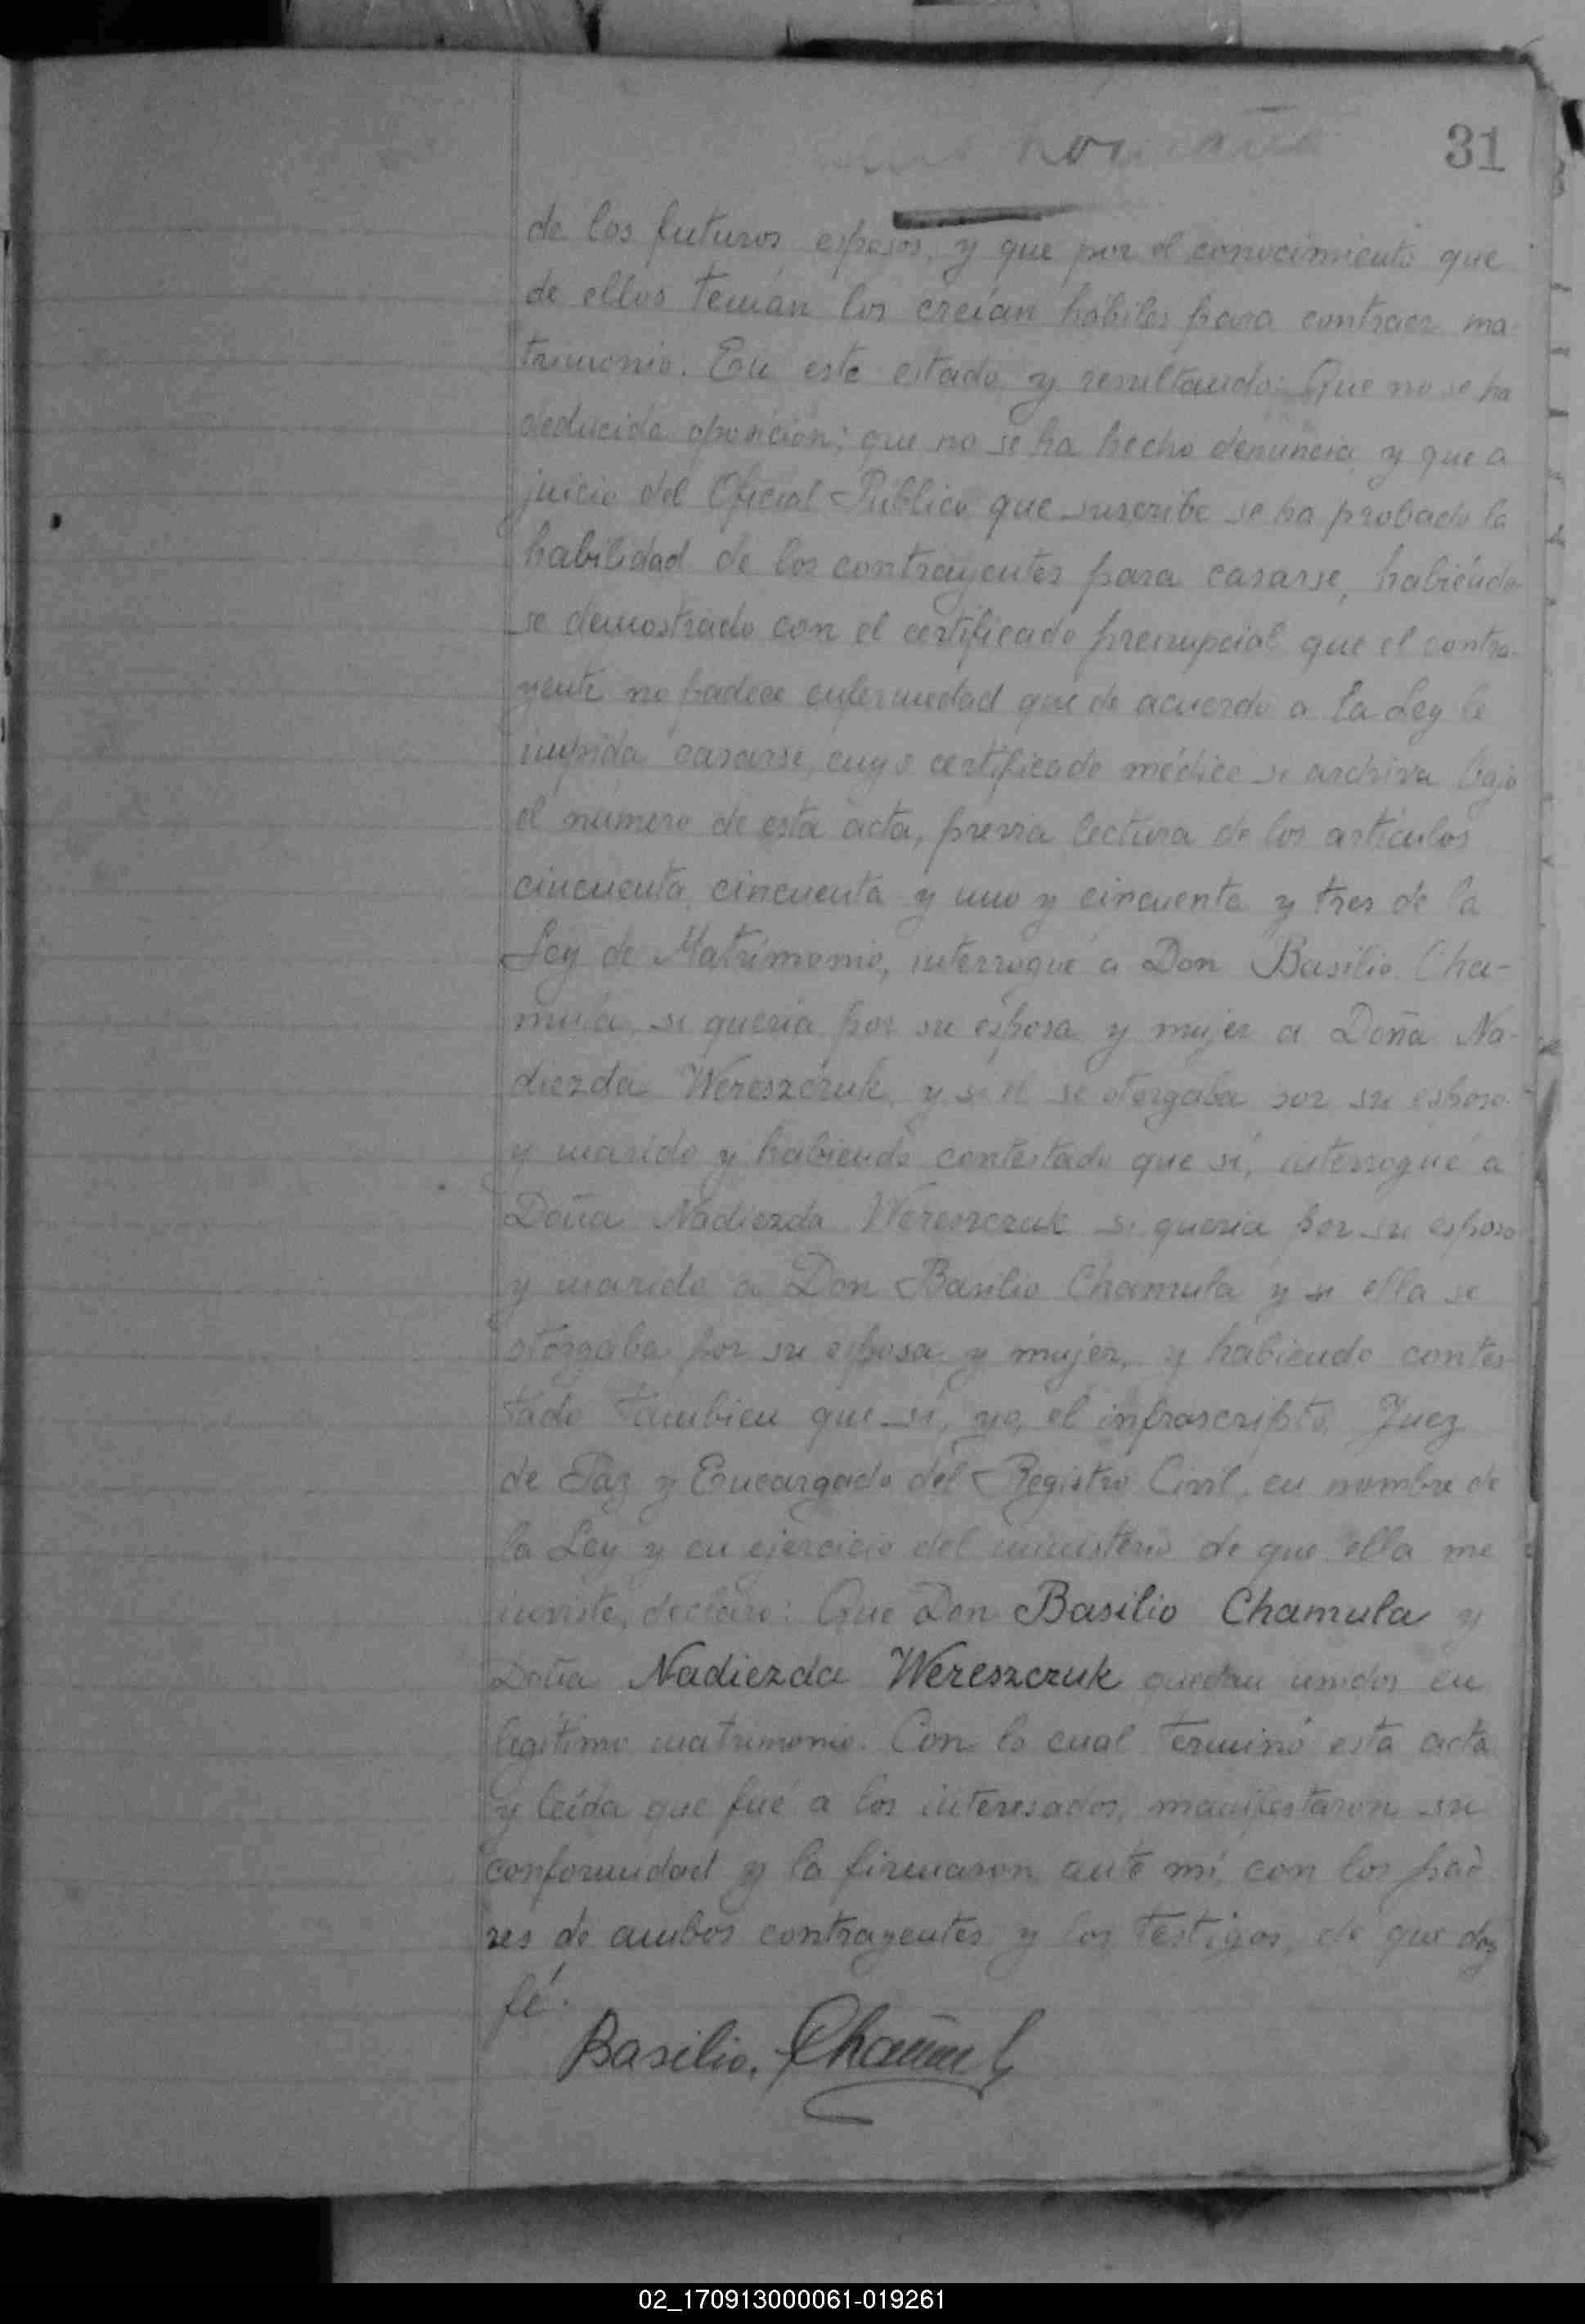 31
de los futuros esposos, y que por el conocimiento que
de ellos tenían los creían hábiles para contraer ma
trimonio. En este estado y resultando: Que no se ha
deducido oposición; que no se ha hecho denuncia y que a
juicio del Oficial Público que suscribe se ha probado la
habilidad de los contrayentes para casarse, habiéndo-
se demostrado con el certificado prenupcial que el contra-
yente no padece enfermedad que de acuerdo a la Ley le
impida casarse, cuyo certificado médico se archiva bajo
el numero de esta acta, previa lectura de los artículos
cincuenta, cincuenta y uno y cincuenta y tres de la
Ley de Matrimonio, interrogué a Don Basilio Cha-
mula, si quería por su esposa y mujer a Doña Na-
diezda Wereszczuk, y si él se otorgaba por su esposo
y marido y habiendo contestado que sí, interrogué a
Doña Nadiezda Wereszczuk si quería por su esposo
y marido a Don Basilio Chamula y si ella se
otorgaba por su esposa y mujer, y habiendo contes-
tado tambien que sí, yo, el infrascripto, Juez
de Paz y Encargado del Registro Civil, en nombre de
la Ley y en ejercicio del ministerio de que ella me
inviste, declaro: Que Don Basilio Chamula y
Doña Nadiezda Wereszczuk quedan unidos en
legítimo matrimonio. Con lo cual terminó esta acta
y leída que fué a los interesados, manifestaron su
conformidad y la firmaron ante mí, con los pad
res de ambos contrayentes y los testigos, de que doy
fé.
Basilio.
02_170913000061-019261